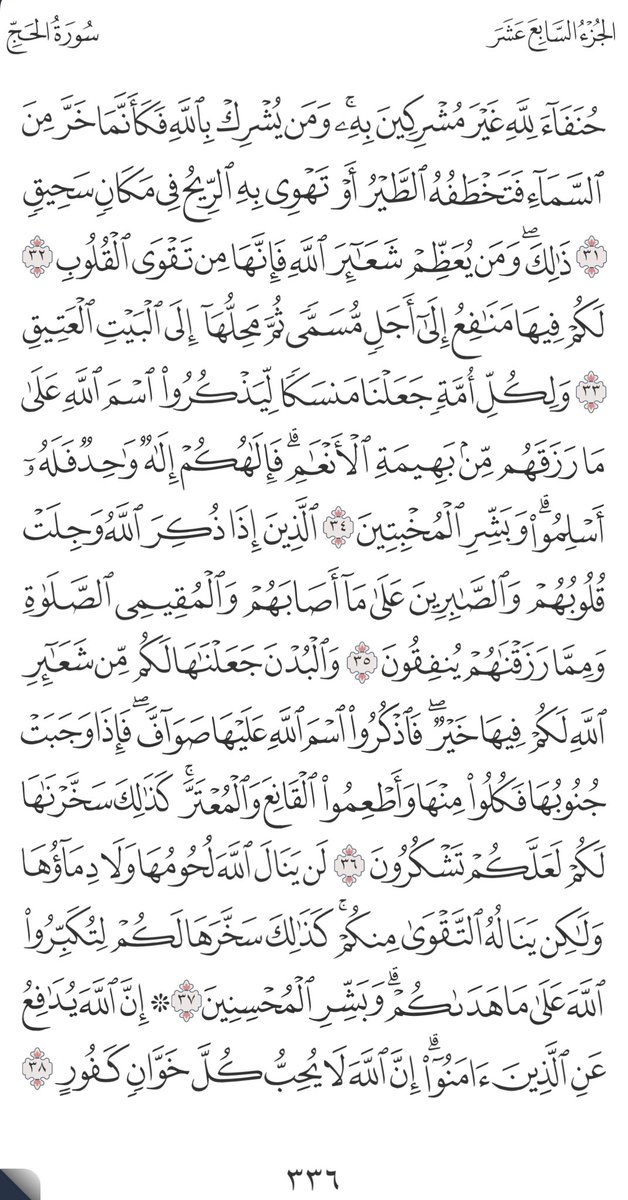 الجزء السابع عشر
سورة الحج
حُنَفَآءَ لِلَّهِ غَيْرَ مُشْرِكِينَ بِهِۦۚ وَمَن يُشْرِكْ بِٱللَّهِ فَكَأَنَّمَا خَرَّ مِنَ
ٱلسَّمَآءِ فَتَخْطَفُهُ ٱلطَّيْرُ أَوْ تَهْوِى بِهِ ٱلرِّيحُ فِى مَكَانٍ سَحِيقٍ
٣١ ذَٰلِكَۖ وَمَن يُعَظِّمْ شَعَٰٓئِرَ ٱللَّهِ فَإِنَّهَا مِن تَقْوَى ٱلْقُلُوبِ ٣٢
لَكُمْ فِيهَا مَنَٰفِعُ إِلَىٰٓ أَجَلٍ مُّسَمًّى ثُمَّ مَحِلُّهَآ إِلَى ٱلْبَيْتِ ٱلْعَتِيقِ
٣٣ وَلِكُلِّ أُمَّةٍ جَعَلْنَا مَنسَكًا لِّيَذْكُرُوا۟ ٱسْمَ ٱللَّهِ عَلَىٰ
مَا رَزَقَهُم مِّنۢ بَهِيمَةِ ٱلْأَنْعَٰمِۗ فَإِلَٰهُكُمْ إِلَٰهٌ وَٰحِدٌ فَلَهُۥٓ
أَسْلِمُوا۟ۗ وَبَشِّرِ ٱلْمُخْبِتِينَ ٣٤ ٱلَّذِينَ إِذَا ذُكِرَ ٱللَّهُ وَجِلَتْ
قُلُوبُهُمْ وَٱلصَّٰبِرِينَ عَلَىٰ مَآ أَصَابَهُمْ وَٱلْمُقِيمِى ٱلصَّلَوٰةِ
وَمِمَّا رَزَقْنَٰهُمْ يُنفِقُونَ ٣٥ وَٱلْبُدْنَ جَعَلْنَٰهَا لَكُم مِّن شَعَٰٓئِرِ
ٱللَّهِ لَكُمْ فِيهَا خَيْرٌۖ فَٱذْكُرُوا۟ ٱسْمَ ٱللَّهِ عَلَيْهَا صَوَآفَّۖ فَإِذَا وَجَبَتْ
جُنُوبُهَا فَكُلُوا۟ مِنْهَا وَأَطْعِمُوا۟ ٱلْقَانِعَ وَٱلْمُعْتَرَّۚ كَذَٰلِكَ سَخَّرْنَٰهَا
لَكُمْ لَعَلَّكُمْ تَشْكُرُونَ ٣٦ لَن يَنَالَ ٱللَّهَ لُحُومُهَا وَلَا دِمَآؤُهَا
وَلَٰكِن يَنَالُهُ ٱلتَّقْوَىٰ مِنكُمْۚ كَذَٰلِكَ سَخَّرَهَا لَكُمْ لِتُكَبِّرُوا۟
ٱللَّهَ عَلَىٰ مَا هَدَىٰكُمْۗ وَبَشِّرِ ٱلْمُحْسِنِينَ ٣٧ ۞ إِنَّ ٱللَّهَ يُدَٰفِعُ
عَنِ ٱلَّذِينَ ءَامَنُوٓا۟ۗ إِنَّ ٱللَّهَ لَا يُحِبُّ كُلَّ خَوَّانٍ كَفُورٍ ٣٨
٣٣٦